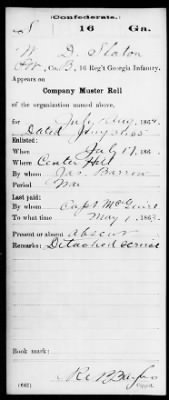 Confederate.
S 16 Ga.
W. D. Slaton
Pvt, Co. B, 16 Reg't Georgia Infantry.
Appears on
Company Muster Roll
of the organization named above,
for July & Aug, 1864.
Dated Jany 1865
Enlisted:
When July 17, 186
Where Center Hill
By whom Jas. Barrow
Period War
Last paid:
By whom Capt McGuire
To what time May 1, 1863.
Present or absent Absent
Remarks: Detached service
Book mark:
(642)
Copyist.